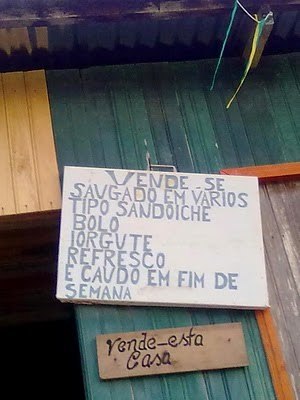 VENDE-SE
SAUGADO EM VARIOS
TIPO SANDOICHE
BOLO
IORGUTE
REFRESCO
E CAUDO EM FIM DE
SEMANA
vende-esta
Casa